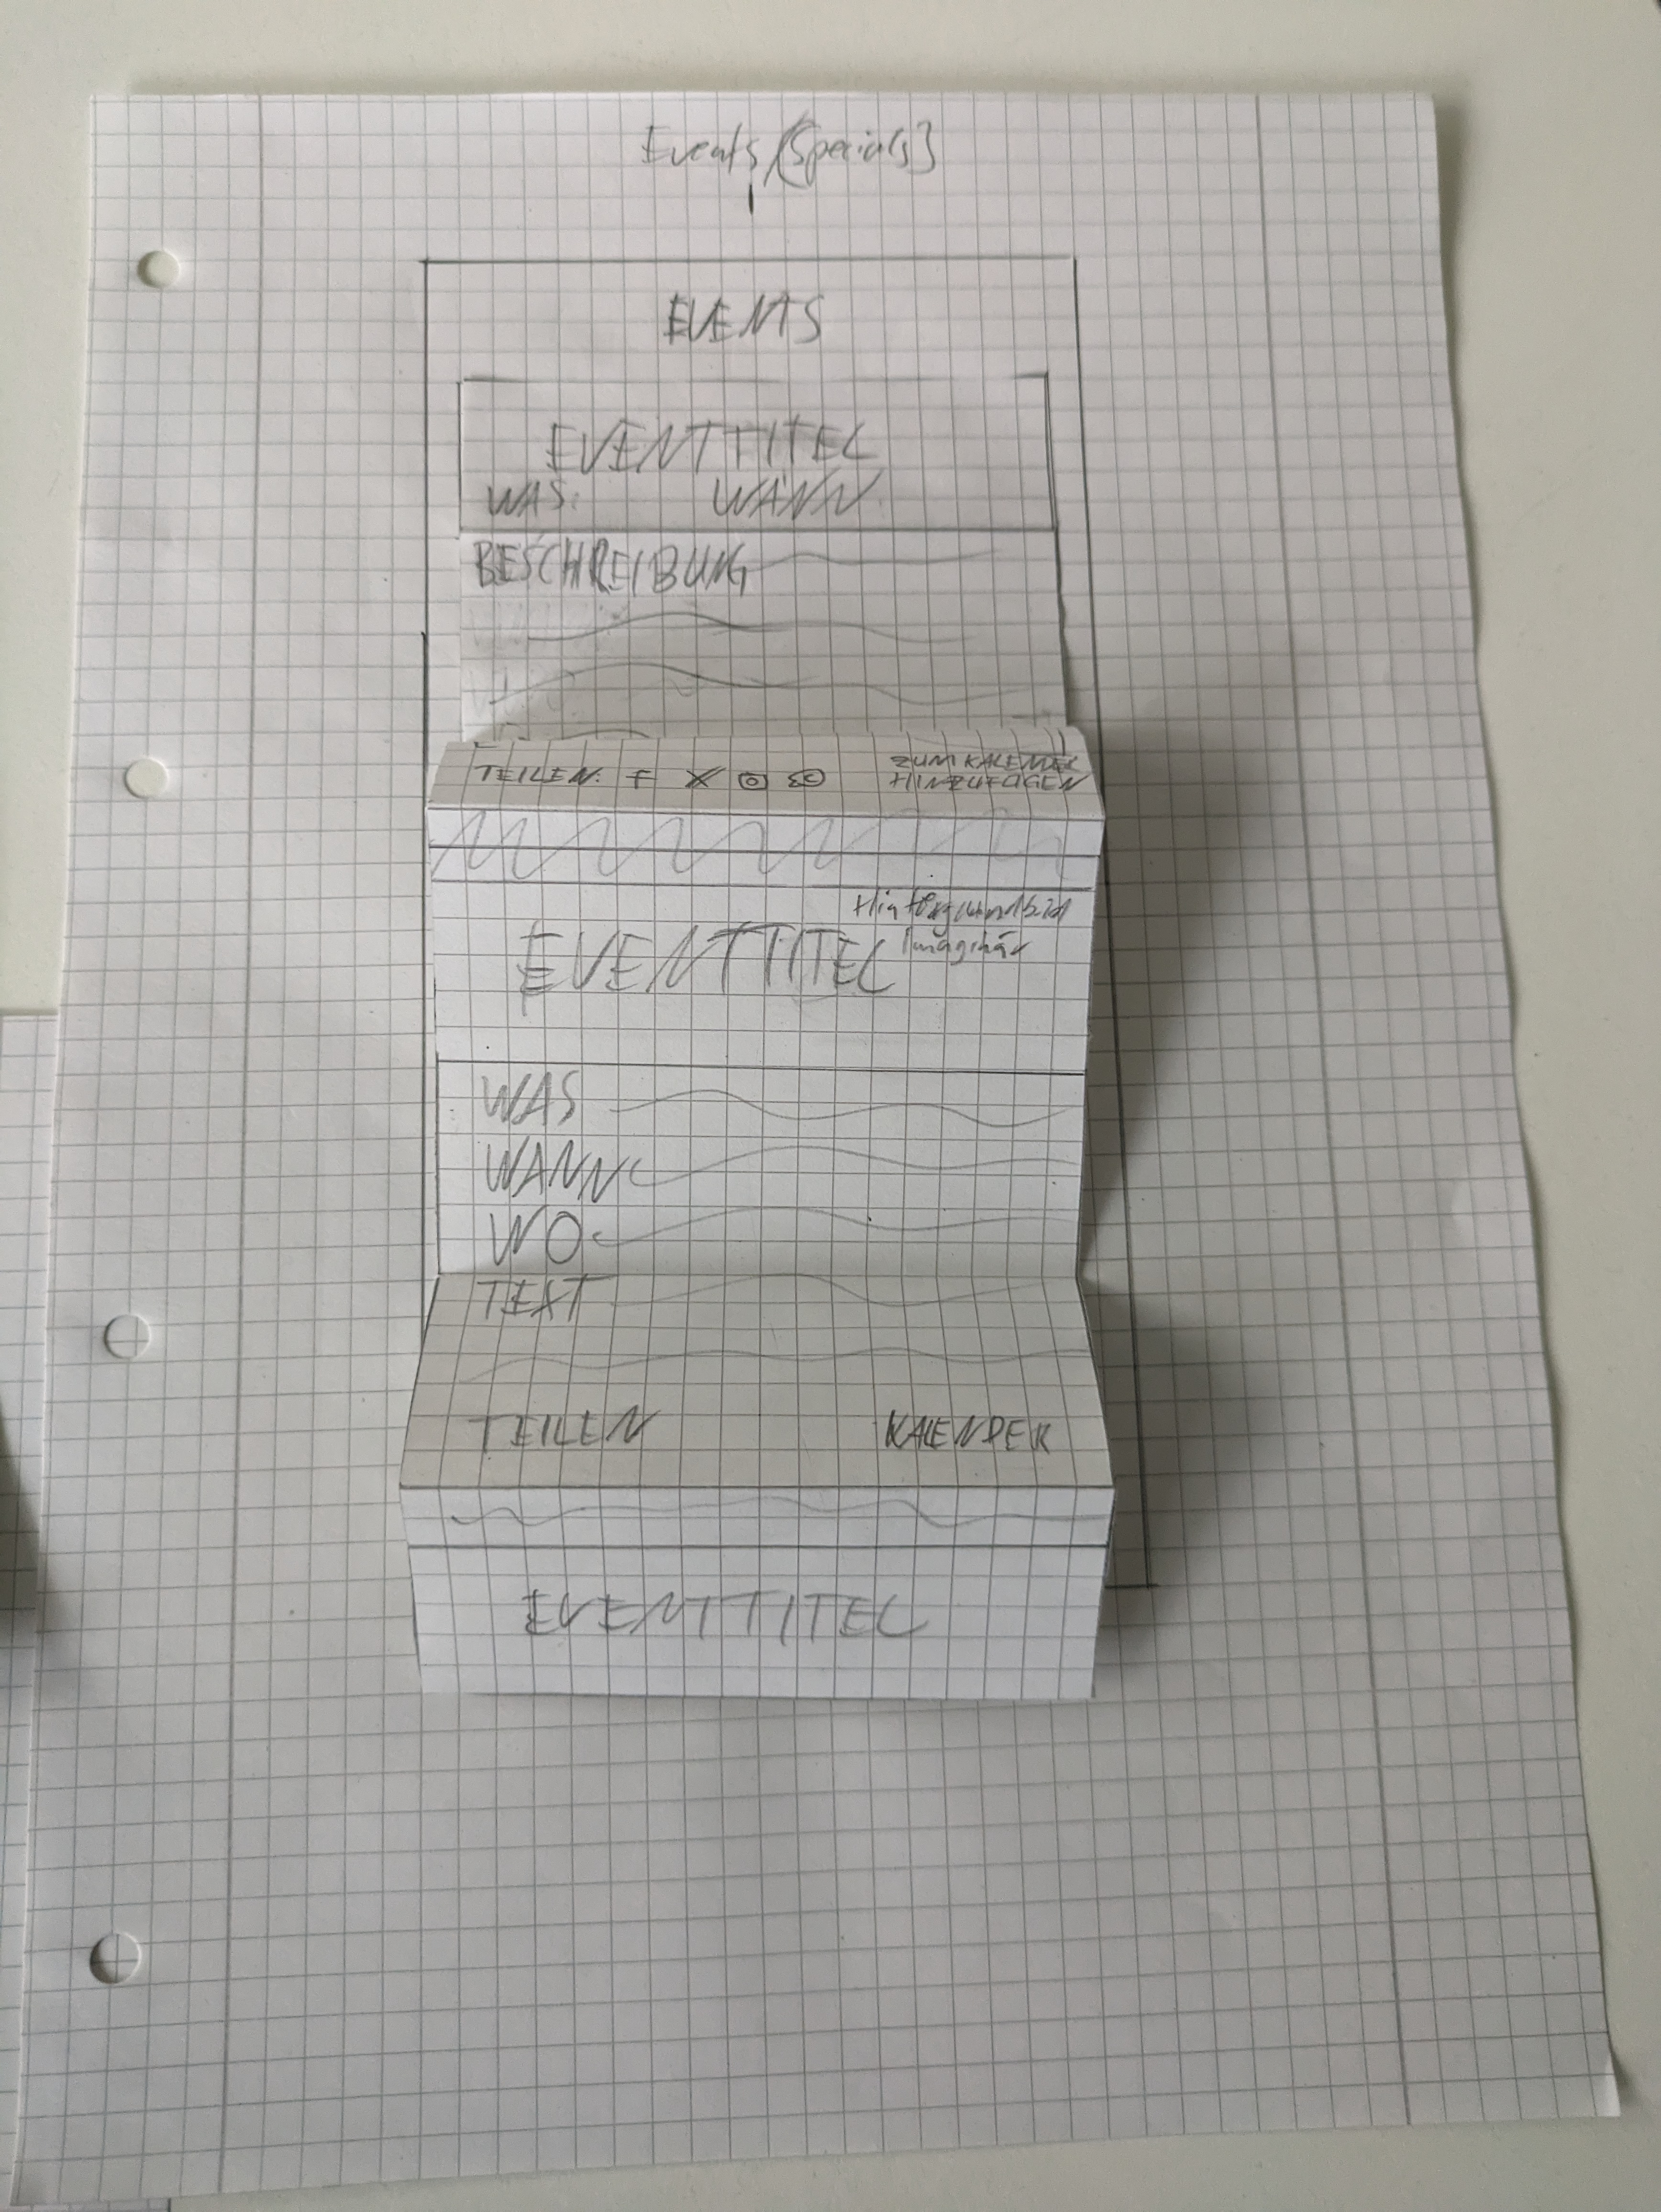 Events (Specials)
EVENTS
EVENTTITEL
WAS: WANN:
BESCHREIBUNG
TEILEN: f X
ZUM KALENDER
HINZUFÜGEN
Hintergrundbild
Imaginär
EVENTTITEL
WAS
WANN
WO
TEXT
TEILEN KALENDER
EVENTTITEL